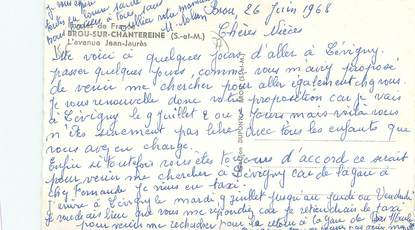 Brou, 26 Juin 1968
de France
BROU-SUR-CHANTEREINE (S.-et-M.)
L'avenue Jean-Jaurès
Chères Nièces
Me voici à quelques jours d'aller à Lévigny
passer quelques jours, comme vous m'avez proposé
de venir me chercher pour aller également chez vous.
Je vous renouvelle donc votre proposition car je vais
à Lévigny le 9 Juillet 8 ou jours mais voilà vous
n'êtes sûrement pas libre avec tous les enfants que
vous avez en charge.
Enfin si toutefois vous êtes toujours d'accord ce serait
pour venir me chercher à Lévigny car de la gare à
chez Fernande je viens en taxi.
à Lévigny le mardi 9 Juillet jusqu'au jeudi ou Vendredi
Je voudrais bien que vous me répondiez car je retiendrais le taxi
pour venir me rechercher pour le retour à la gare de Bar